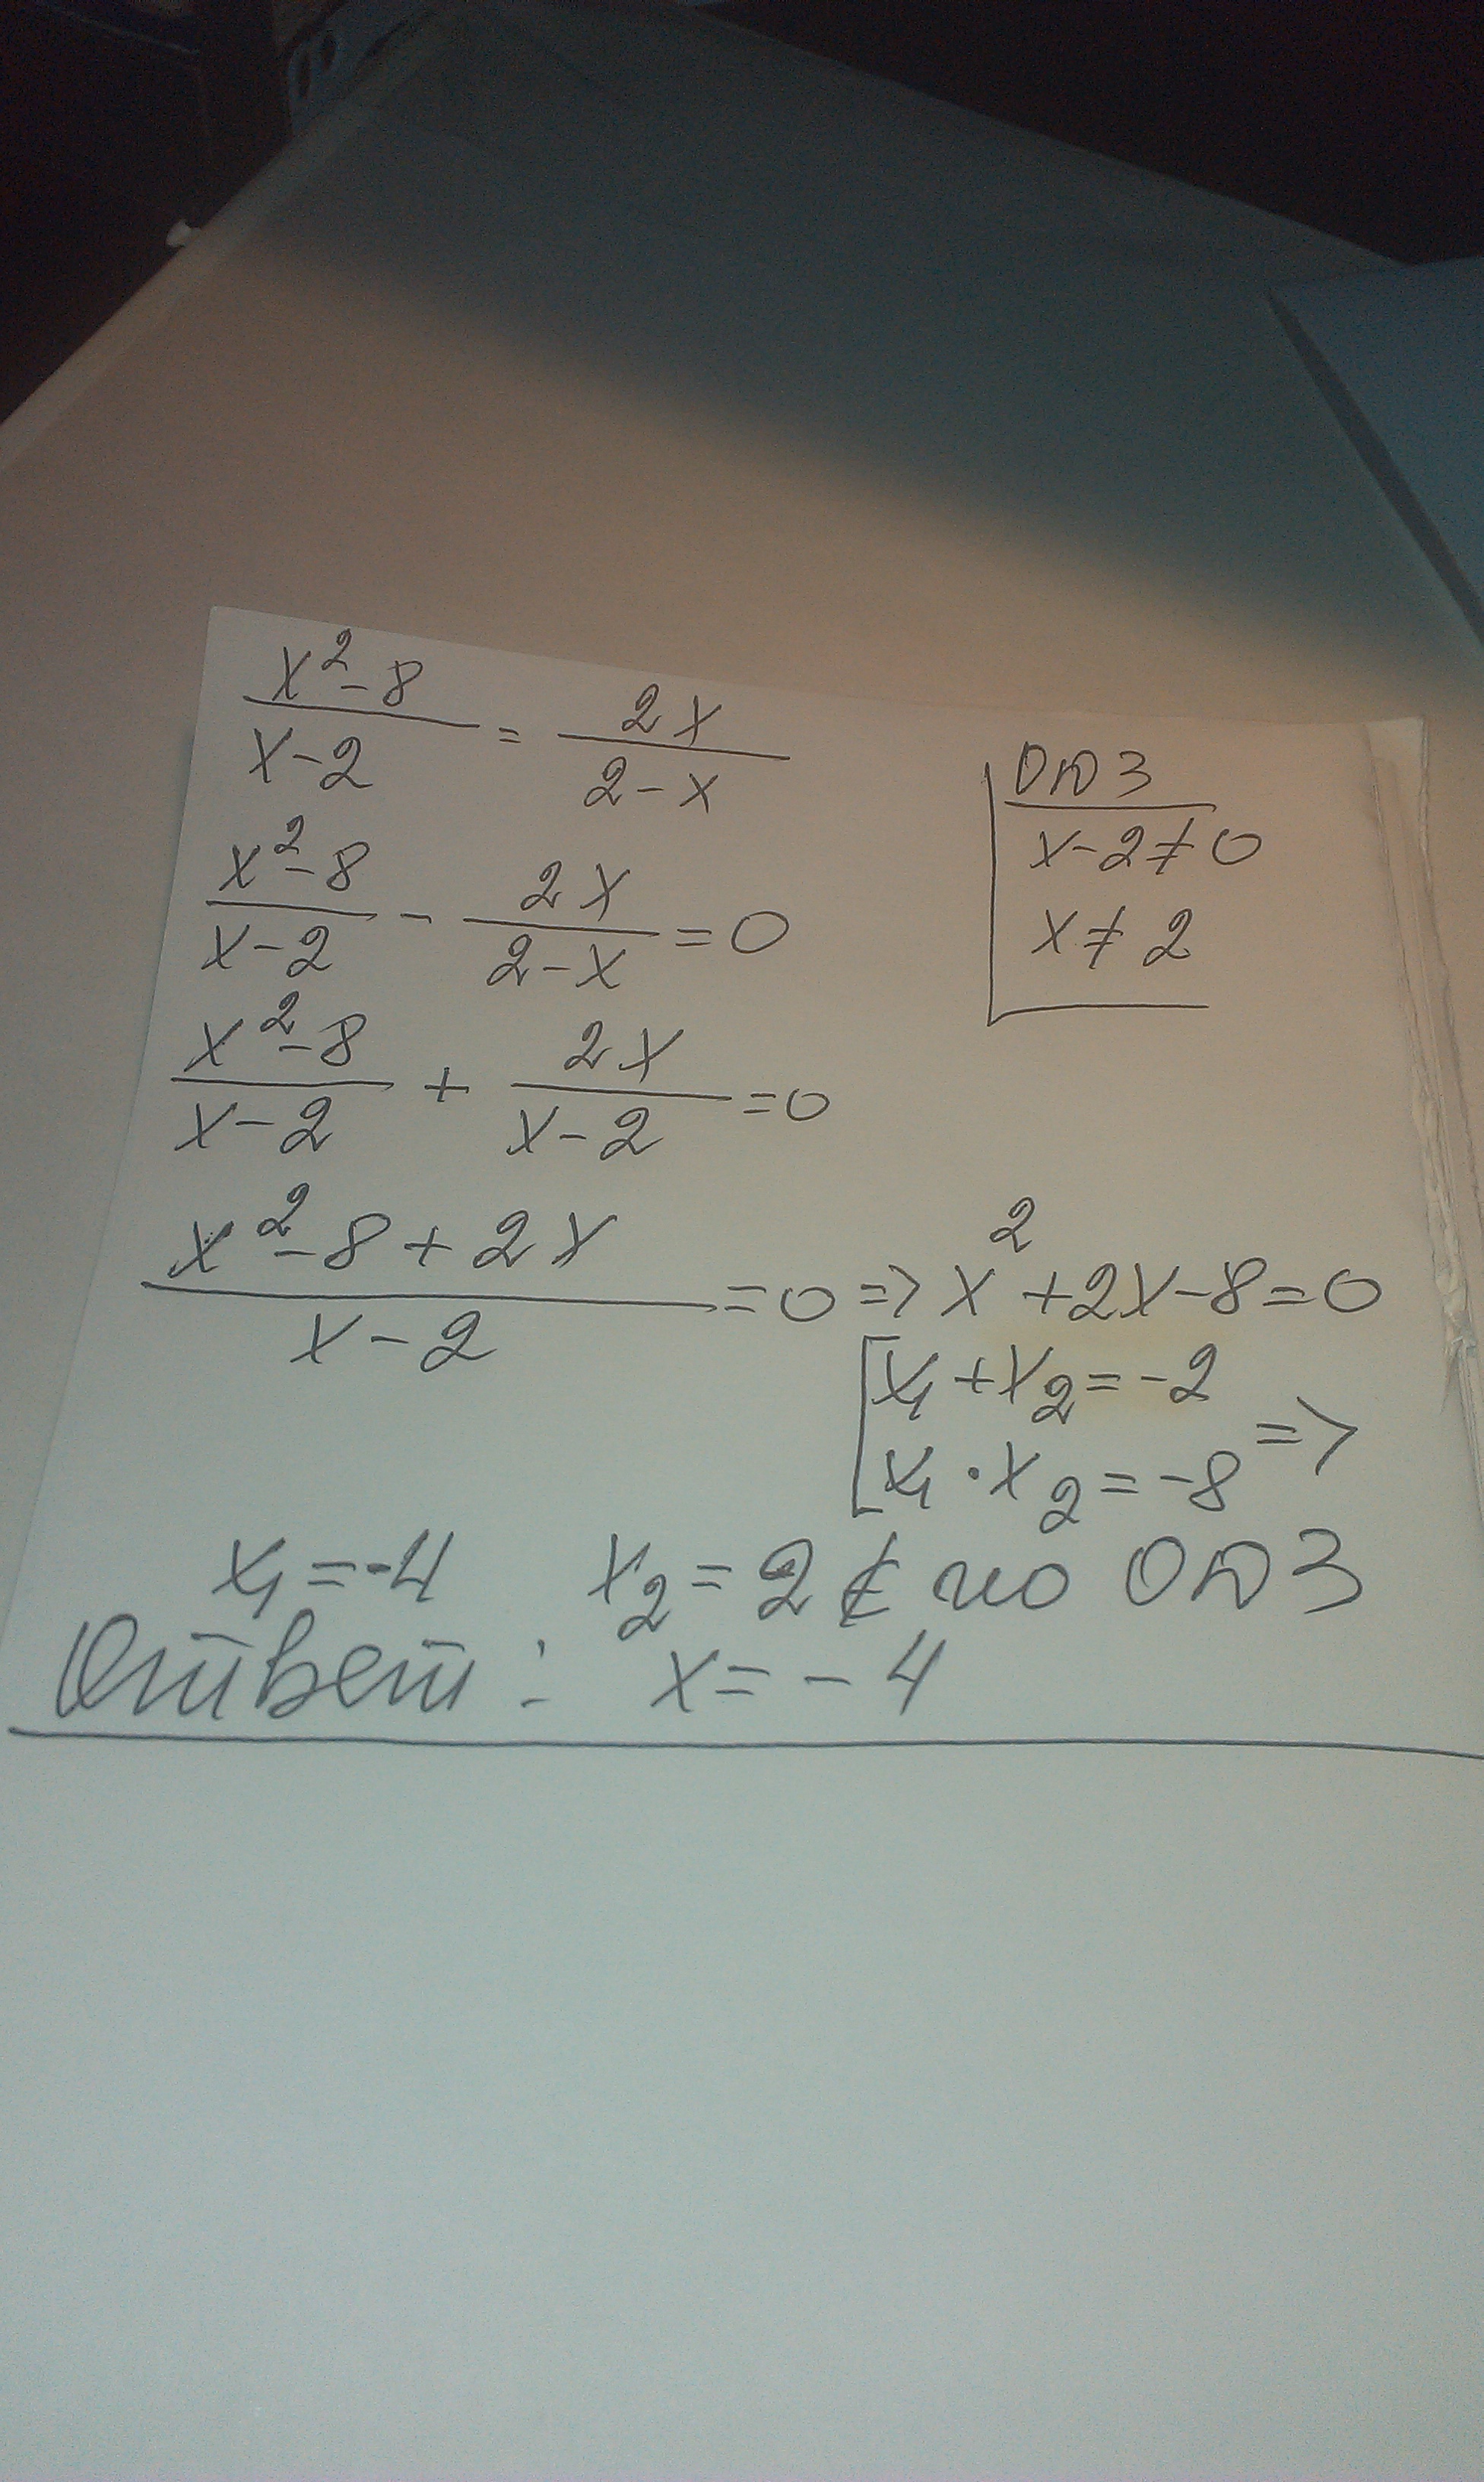 x²-8/x-2 = 2x/2-x
ОДЗ
x-2≠0
x≠2
x²-8/x-2 - 2x/2-x =0
x²-8/x-2 + 2x/x-2 =0
x²-8+2x/x-2 =0 => x²+2x-8=0
[x₁+x₂=-2
[x₁·x₂=-8 =>
x₁=-4 x₂=2 ∉ по ОДЗ
Ответ: x=-4